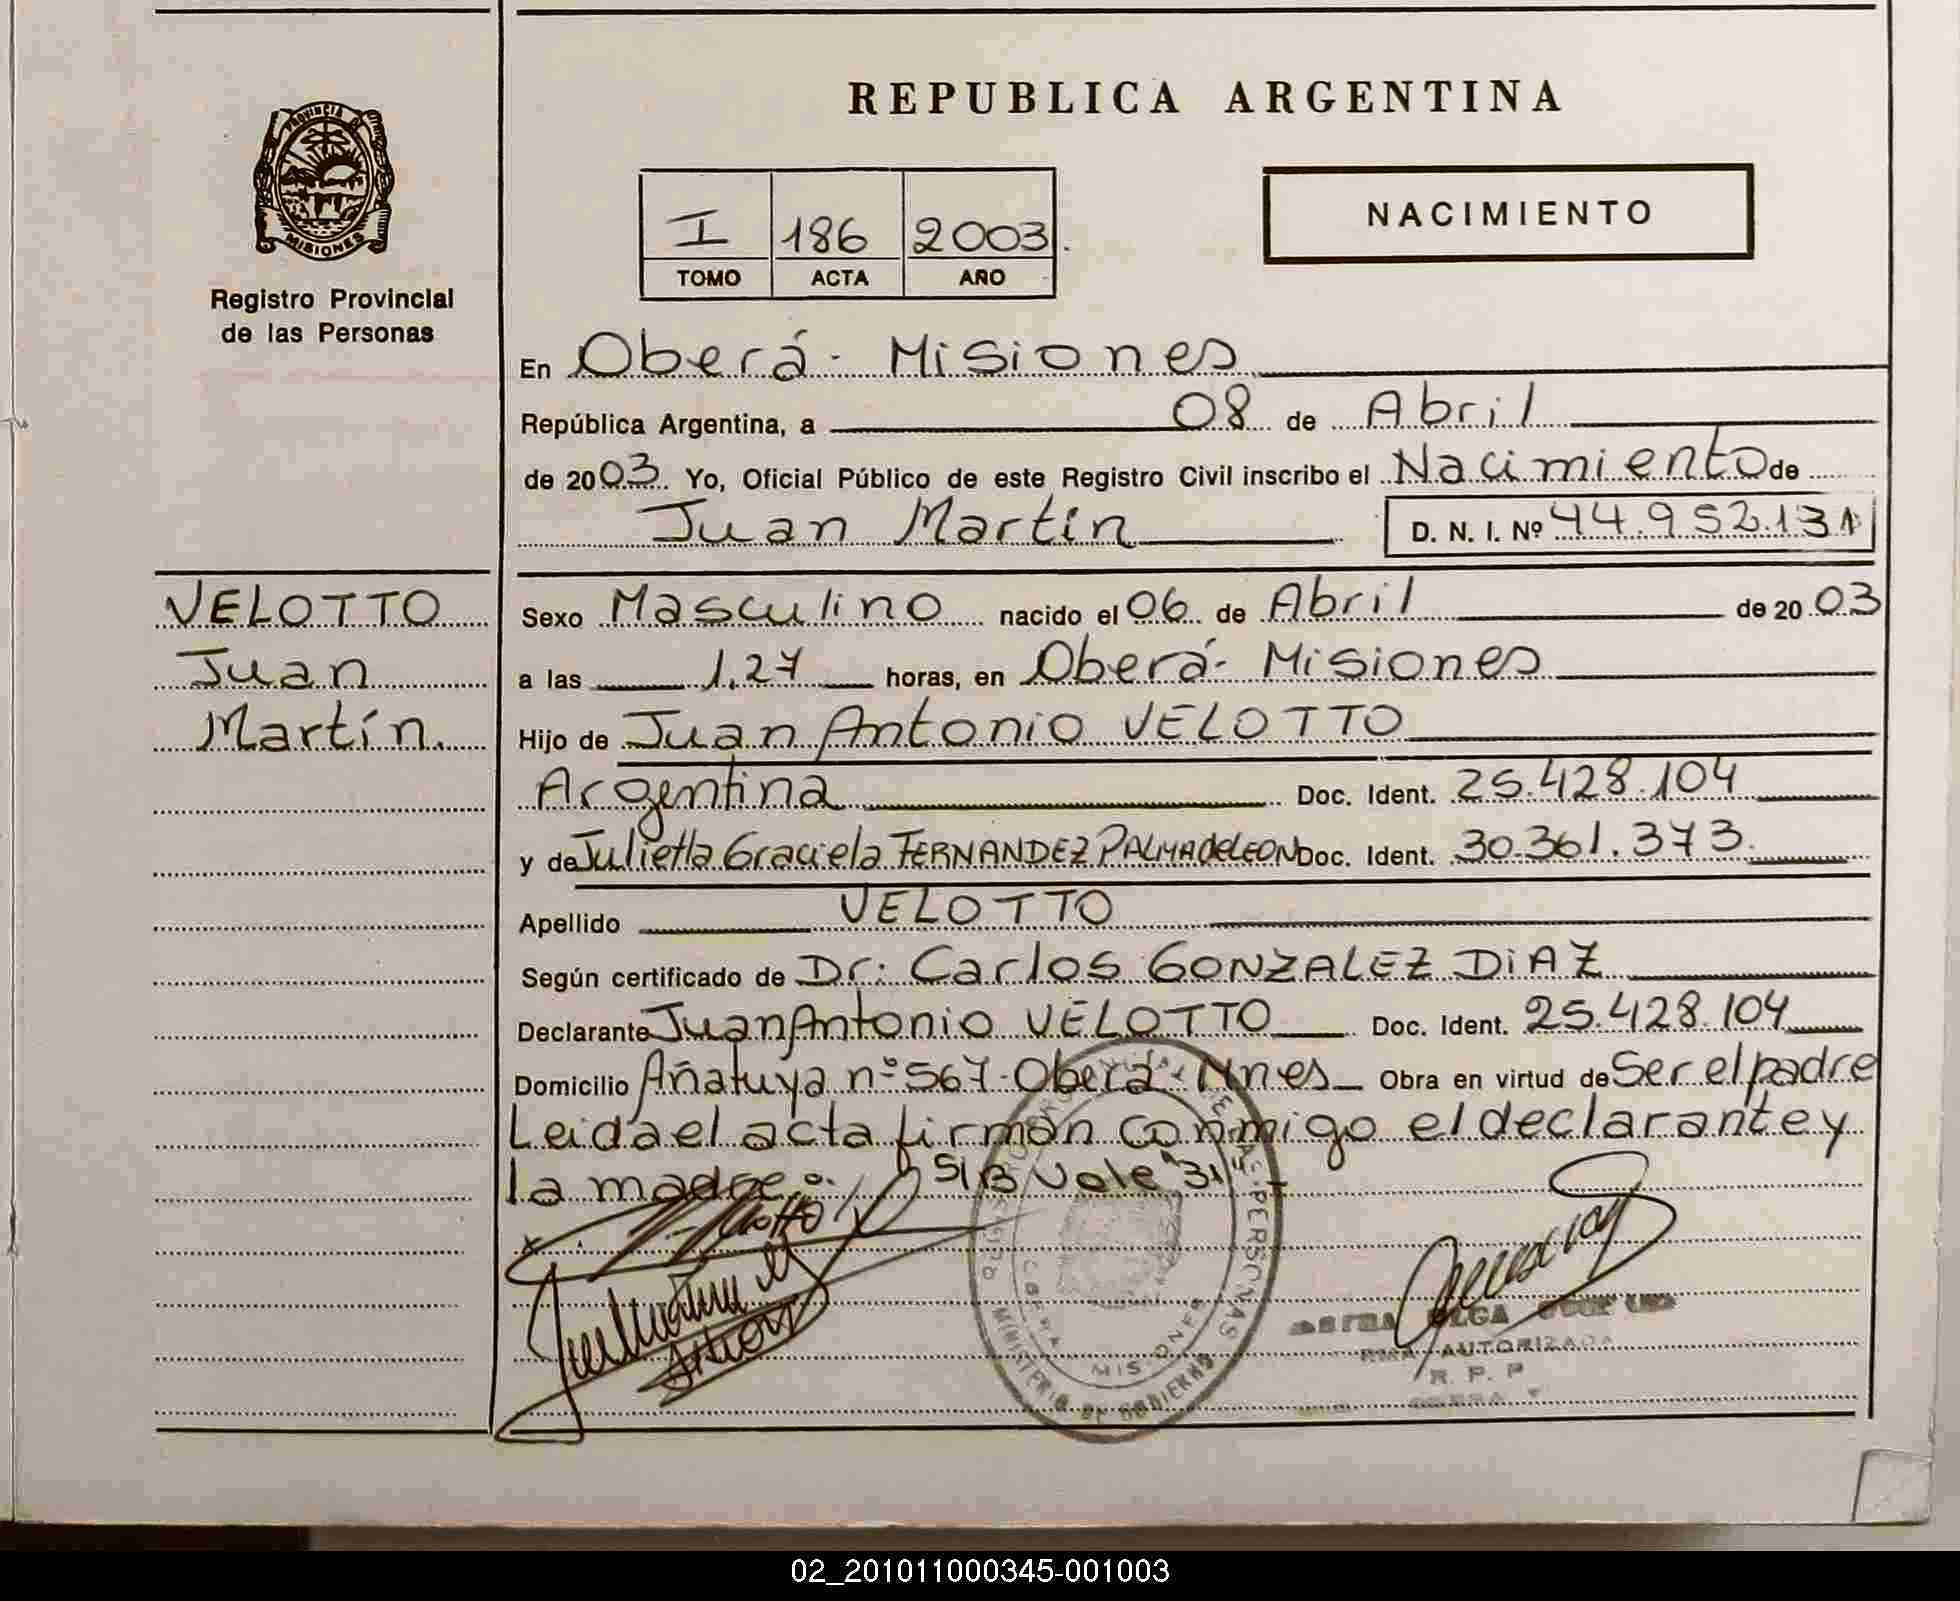 REPUBLICA ARGENTINA
PROVINCIA DE
MISIONES
Registro Provincial
de las Personas
I 186 2003.
TOMO ACTA AÑO
NACIMIENTO
En Oberá - Misiones
República Argentina, a 08 de Abril
de 2003 Yo, Oficial Público de este Registro Civil inscribo el Nacimiento de
Juan Martín D. N. I. Nº 44.952.131
VELOTTO
Juan
Martín.
Sexo Masculino nacido el 06 de Abril de 2003
a las 1.27 horas, en Oberá - Misiones
Hijo de Juan Antonio VELOTTO
Argentina Doc. Ident. 25.428.104
y de Julietta Graciela FERNANDEZ PALMA de LEON Doc. Ident. 30.361.373.
Apellido VELOTTO
Según certificado de Dr: Carlos GONZALEZ DIAZ
Declarante Juan Antonio VELOTTO Doc. Ident. 25.428.104
Domicilio Añatuya nº 567 - Oberá - Mnes Obra en virtud de Ser el padre
Leida el acta firman conmigo el declarante y
la madre.- S/B Vale "31" -
PERSONAS
MISIONES
MINISTERIO DE GOBIERNO
OLGA
AUTORIZADA
R. P. P
02_201011000345-001003